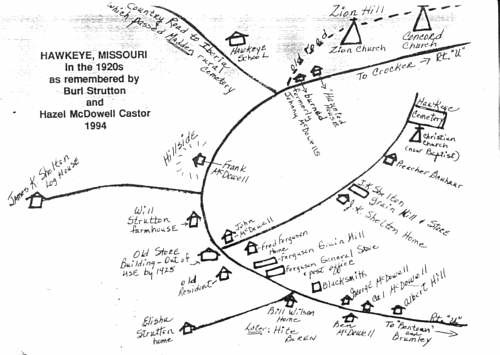 HAWKEYE, MISSOURI
In the 1920s
as remembered by
Burl Strutton
and
Hazel McDowell Castor
1994
Country Road to Iberia
which passed Madden
rural
cemetery
Hawkeye
School
Old Road
Zion Hill
Zion Church
Concord
Church
To Crocker → Rt. "U"
Haunted
House
burned
formerly
Johnny McDowells
Hawkeye
Cemetery
Christian
Church
(now Baptist)
Preacher
Hillside
Frank
McDowell
James K Shelton
Log House
J.K. Shelton
Grain Mill & Store
J.K. Shelton Home
Will
Strutton
farmhouse
John
McDowell
Old Store
Building - Out of
use by 1925
Fred Ferguson
Home
Ferguson Grain Mill
Ferguson General Store
& post office
Old
Resident
Blacksmith
George McDowell
Cal McDowell
Albert Hill
Bill Wilson
Home
Later: Hite
Ben
McDowell
Elisha
Strutton
home
Rt. "U"
To "Bentown" and
Brumley